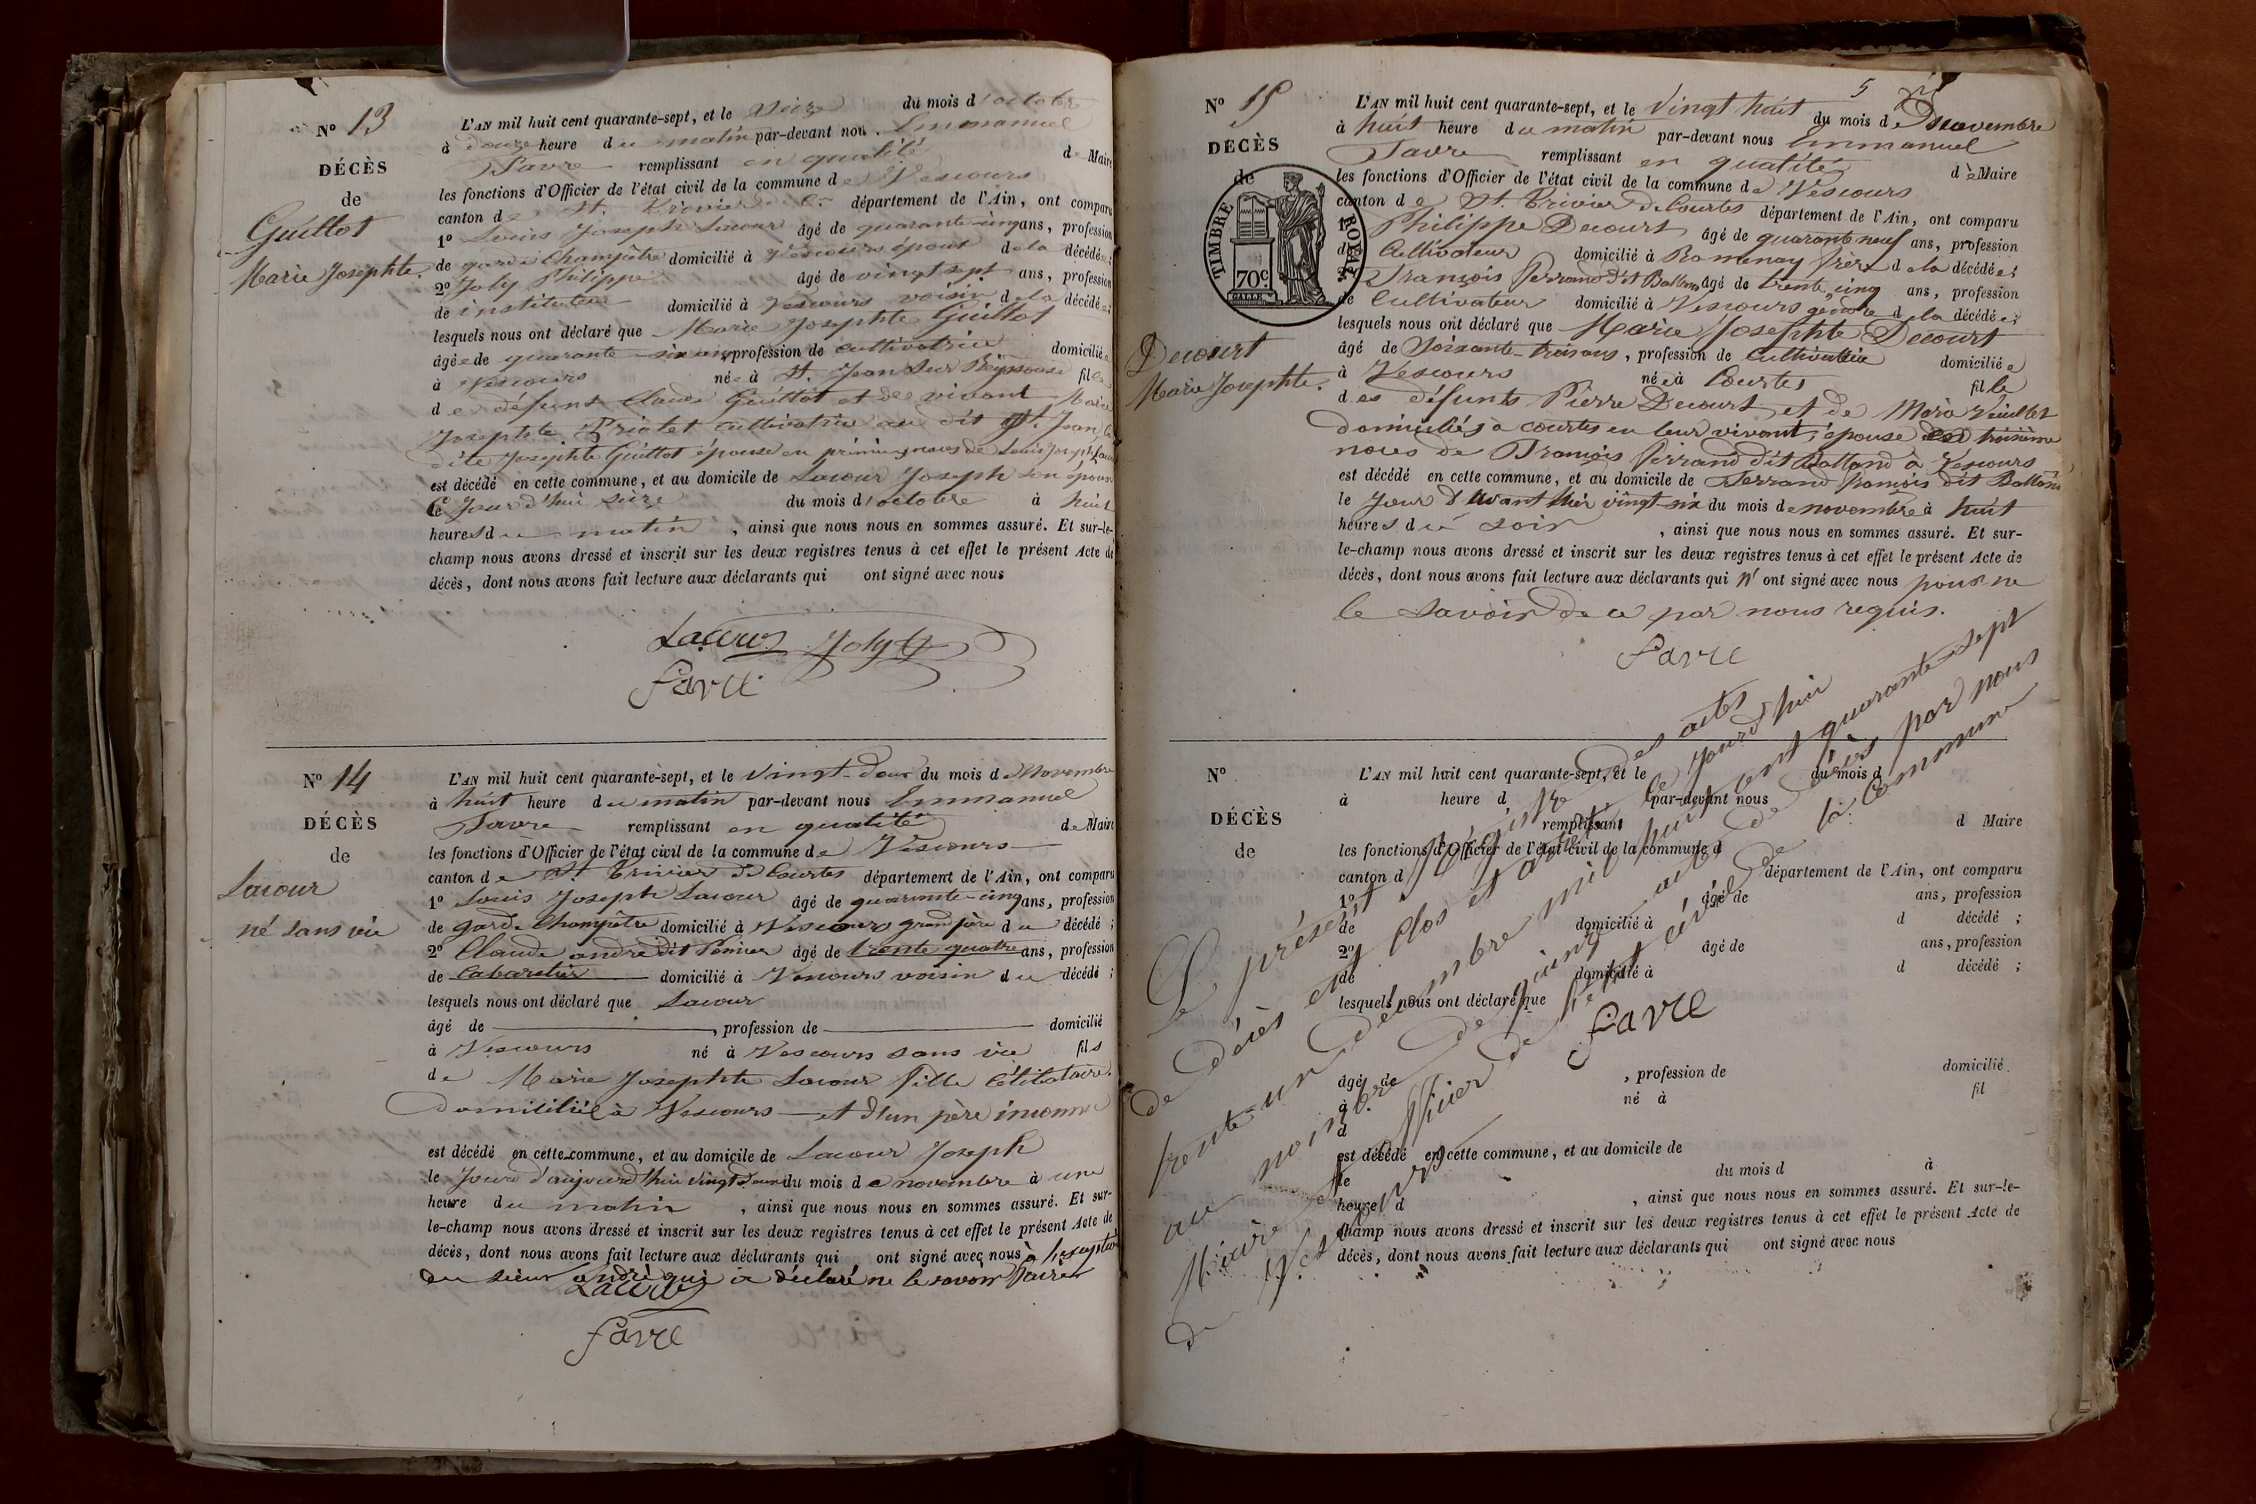 N° 13
DÉCÈS
de
Guillot
Marie Josephte.
L'AN mil huit cent quarante-sept, et le Seize du mois d'octobre
à douze heure du matin par-devant nous Emmanuel
Favre remplissant en qualité de Maire
les fonctions d'Officier de l'état civil de la commune de Vescours
canton de St. Trivier de C. département de l'Ain, ont comparu
1° Louis Joseph Lacour âgé de quarante-cinq ans, profession
de garde Champêtre domicilié à Vescours époux de la décédée;
2° Joly Philippe âgé de vingt sept ans, profession
de instituteur domicilié à Vescours voisin de la décédée;
lesquels nous ont déclaré que Marie Josephte Guillot
âgée de quarante-six ans, profession de cultivatrice domiciliée
à Vescours née à St. Jean Sur Reyssouze fille
de défunt Claude Guillot et de vivant Marie
Josephte Priolet cultivatrice au dit St. Jean, la
dite Josephte Guillot épouse en première noces de Louis Joseph Lacour
est décédé en cette commune, et au domicile de Lacour Joseph son époux
le Jour d'hui seize du mois d'octobre à huit
heures du matin, ainsi que nous nous en sommes assuré. Et sur-le-
champ nous avons dressé et inscrit sur les deux registres tenus à cet effet le présent Acte de
décès, dont nous avons fait lecture aux déclarants qui ont signé avec nous
Lacour Joly
Favre
N° 14
DÉCÈS
de
Lacour
né sans vie
L'AN mil huit cent quarante-sept, et le vingt-deux du mois de Novembre
à huit heure du matin par-devant nous Emmanuel
Favre remplissant en qualité de Maire
les fonctions d'Officier de l'état civil de la commune de Vescours
canton de St Trivier de Courtes département de l'Ain, ont comparu
1° Louis Joseph Lacour âgé de quarante-cinq ans, profession
de garde Champêtre domicilié à Vescours grand père du décédé;
2° Claude andré dit Perrier âgé de trente quatre ans, profession
de Cabaretier domicilié à Vescours voisin du décédé;
lesquels nous ont déclaré que Lacour
âgé de, profession de domicilié
à Vescours né à Vescours sans vie fils
de Marie Josephte Lacour fille Célibataire.
Domiciliée à Vescours et d'un père inconnu
est décédé en cette commune, et au domicile de Lacour Joseph
le Jour d'aujourd'hui vingt Deux du mois de novembre à une
heure du matin, ainsi que nous nous en sommes assuré. Et sur-
le-champ nous avons dressé et inscrit sur les deux registres tenus à cet effet le présent Acte de
décès, dont nous avons fait lecture aux déclarants qui ont signé avec nous à l'exeption
du sieur andré qui a déclaré ne le savoir faire
Lacour
Favre
5
N° 15
DÉCÈS
de
TIMBRE ROYAL
70c.
Decourt
Marie Josephte.
L'AN mil huit cent quarante-sept, et le Vingt huit du mois de novembre
à huit heure du matin par-devant nous Emmanuel
Favre remplissant en qualité de Maire
les fonctions d'Officier de l'état civil de la commune de Vescours
canton de St. Trivier de Courtes département de l'Ain, ont comparu
1° Philippe Decourt âgé de quarante neuf ans, profession
de Cultivateur domicilié à Romenay frère de la décédée;
2° François Perrand dit Balland âgé de trente cinq ans, profession
de Cultivateur domicilié à Vescours gendre de la décédée;
lesquels nous ont déclaré que Marie Josephte Decourt
âgé de Soixante-trois ans, profession de Cultivatrice domiciliée
à Vescours née à Courtes fille
des défunts Pierre Decourt et de Marie Veuillet
domiciliés à courtes en leur vivant, épouse en troisième
noces de François Perrand dit Balland à Vescours
est décédé en cette commune, et au domicile de Perrand françois dit Balland
le Jour d'avant hier vingt-six du mois de novembre à huit
heures du soir, ainsi que nous nous en sommes assuré. Et sur-
le-champ nous avons dressé et inscrit sur les deux registres tenus à cet effet le présent Acte de
décès, dont nous avons fait lecture aux déclarants qui n'ont signé avec nous pour ne
le savoir de ce par nous requis.
Favre
N°
DÉCÈS
de
L'AN mil huit cent quarante-sept, et le du mois d
à heure d par-devant nous
remplissant d Maire
les fonctions d'Officier de l'état civil de la commune d
canton d département de l'Ain, ont comparu
1° âgé de ans, profession
de domicilié à d décédé;
2° âgé de ans, profession
de domicilié à d décédé;
lesquels nous ont déclaré que
âgé de, profession de domicilié
à né à fil
d
est décédé en cette commune, et au domicile de
le du mois d à
heure d, ainsi que nous nous en sommes assuré. Et sur-le-
champ nous avons dressé et inscrit sur les deux registres tenus à cet effet le présent Acte de
décès, dont nous avons fait lecture aux déclarants qui ont signé avec nous
Le présent Régistre des actes
de décès est clos et arrêté ce jourd'hui
trente-un décembre mil huit cent quarante-sept
au nombre de quinze actes de décès par nous
Maire et officier de l'état civil de la commune
de Vescours
Favre